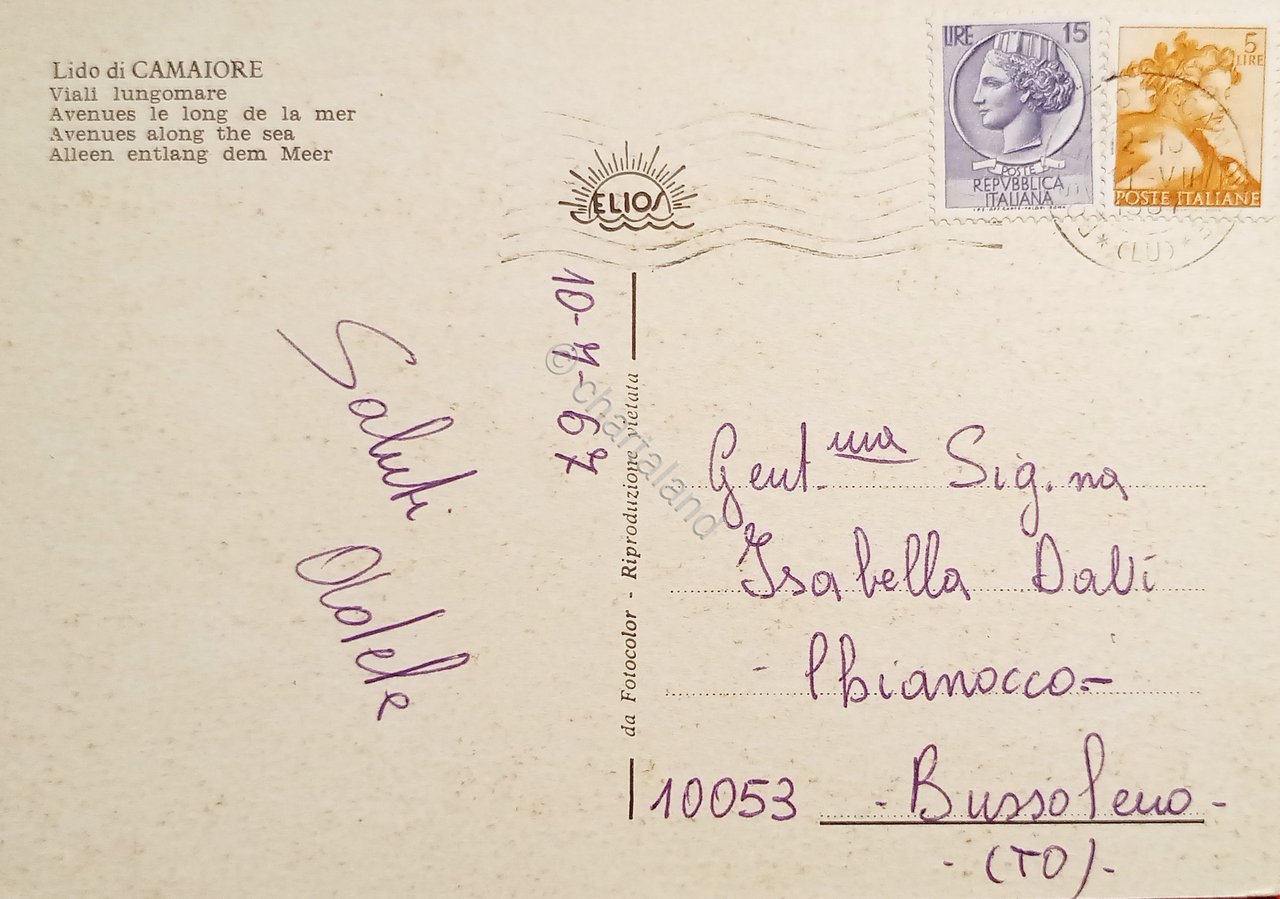 Lido di CAMAIORE
Viali lungomare
Avenues le long de la mer
Avenues along the sea
Alleen entlang dem Meer
ELIOS
LIRE 15
POSTE
REPVBBLICA
ITALIANA
5
LIRE
POSTE ITALIANE
(LU)
10-7-67
Saluti
da Fotocolor - Riproduzione vietata
© chartaland
Gent.ma Sig.na
Isabella
- Chianocco -
10053 - Bussoleno -
- (TO) -